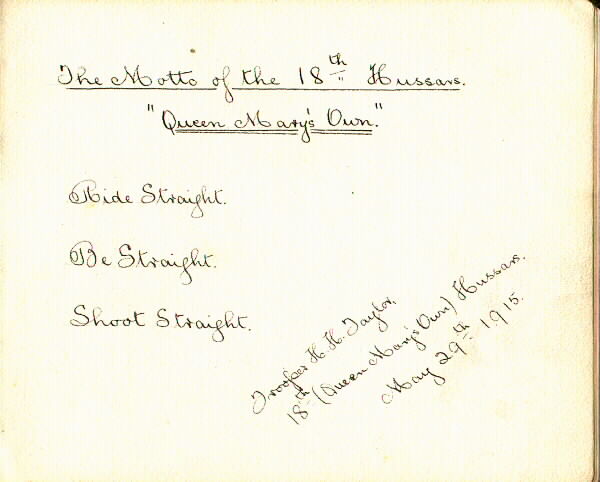 The Motto of the 18th Hussars.
"Queen Mary's Own."
Ride Straight.
Be Straight.
Shoot Straight.
Trooper H. H. Taylor.
18th (Queen Mary's Own) Hussars.
May 29th 1915.